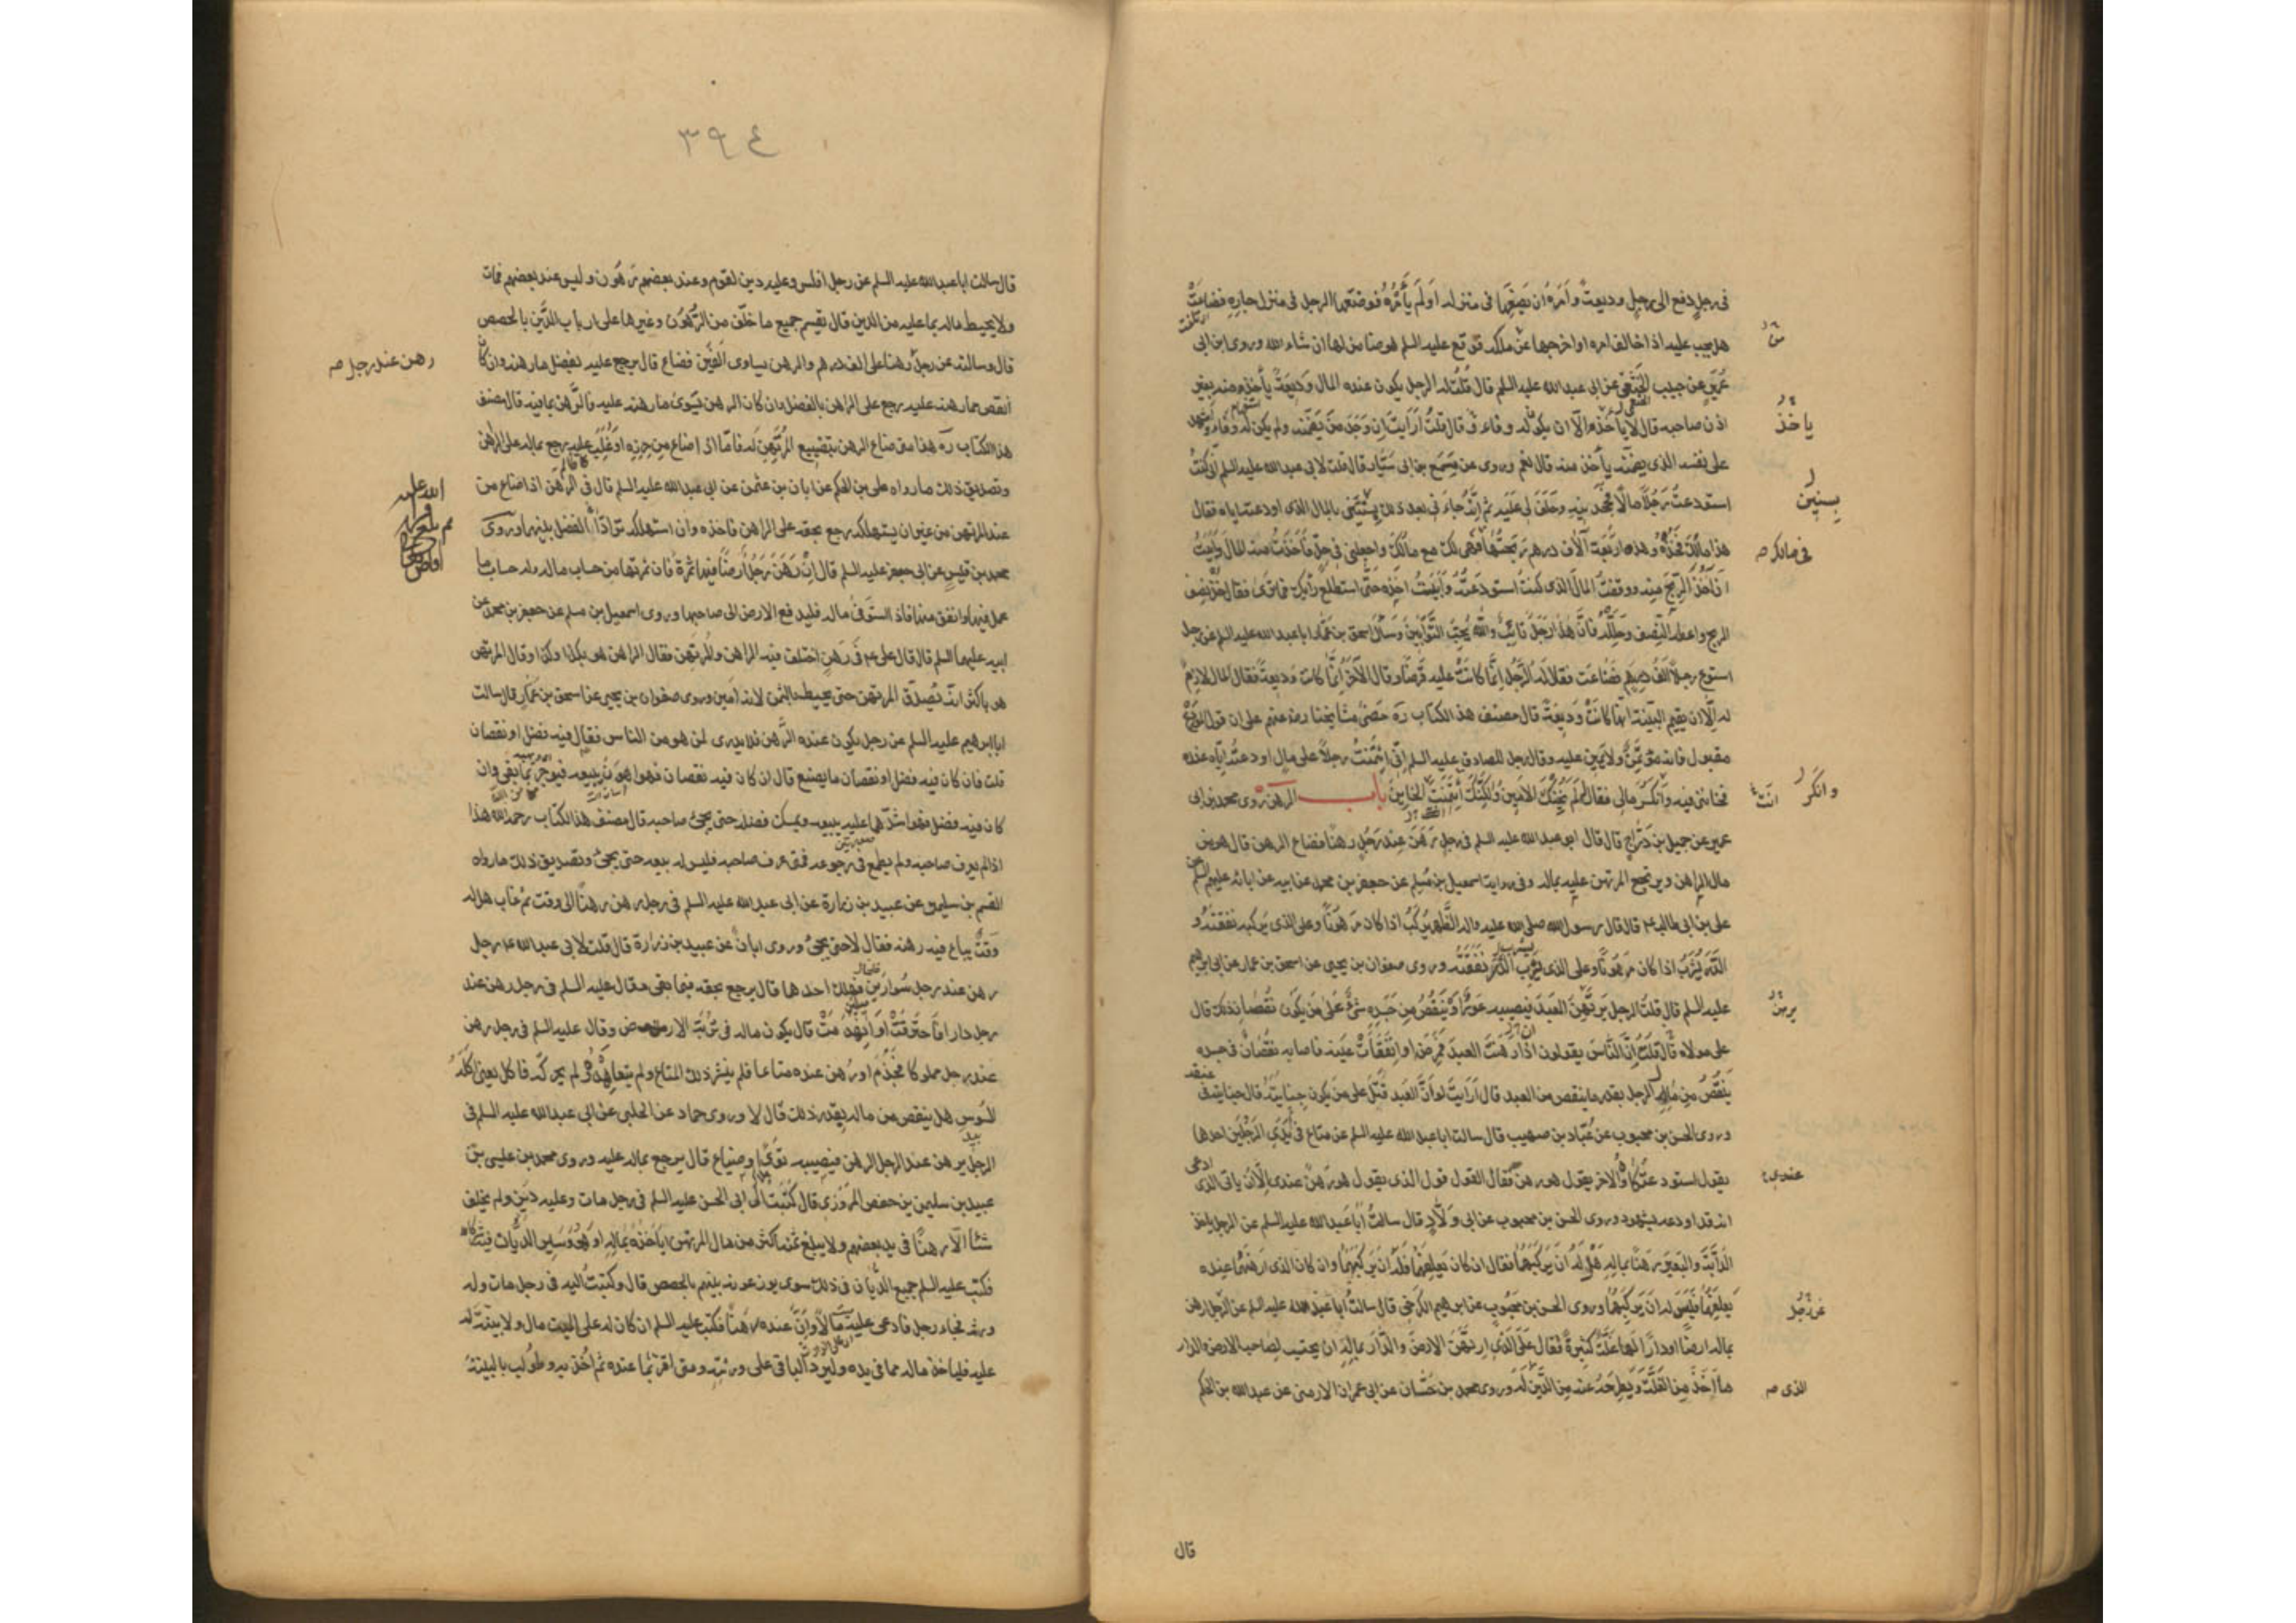 في رجل دفع الى رجل وديعة وامره ان يضعها في منزله او لم يأمره فوضعها الرجل في منزل جاره فضاعت
هل يجب عليه اذا خالف امره او اخرجها عن ملكه فوقع عليه السلم هو ضامن لها ان شاء الله وروى ابن ابى
عمير عن حبيب الخثعمى عن ابى عبد الله عليه السلم قال قلت له الرجل يكون عنده المال وديعة يأخذ منه بغير
اذن صاحبه قال لا يأخذه الا ان يكون له وفاء قال قلت ارايت ان وجد من يضمنه ولم يكن له وفاء واشهد
على نفسه الذى يضمنه يأخذ منه قال نعم وروى عن مسمع بن ابى سيار قال قلت لابى عبد الله عليه السلم انى كنت
استودعت رجلا مالا فجحدنيه وحلف لى عليه ثم انه جاءنى بعد ذلك بسنتين بالمال الذى اودعته اياه فقال
هذا مالك فخذه وهذه اربعة آلاف درهم ربحتها فهى لك مع مالك واجعلنى في حل فأخذت منه المال وابيت
ان آخذ الربح منه ووقفت المال الذى كنت استودعته وابيت اخذه حتى استطلع رأيك فما ترى فقال خذ نصف
الربح واعطه النصف وحلله فان هذا رجل تائب والله يحب التوابين وسأل اسحق بن عمار ابا عبد الله عليه السلم عن رجل
استودع رجلا الف درهم فضاعت فقال له الرجل انما كانت عليه قرضا وقال الاخر انما كانت وديعة فقال المال لازم
له الا ان يقيم البينة انها كانت وديعة قال مصنف هذا الكتاب ره مضى مشايخنا رضى عنهم على ان قول المودع
مقبول فانه مؤتمن ولا يمين عليه وقال رجل للصادق عليه السلم انى ائتمنت رجلا على مال اودعته اياه عنده
فخاننى فيه وانكر مالى فقال لم يخنك الامين ولكنك ائتمنت الخاين باب الرهن روى محمد بن ابى
عمير عن جميل بن دراج قال قال ابو عبد الله عليه السلم في رجل رهن عند رجل رهنا فضاع الرهن قال هو من
مال الراهن ويرتجع المرتهن عليه بماله وفى رواية اسمعيل بن مسلم عن جعفر بن محمد عن ابيه عن ابائه عليهم السلم عن
على بن ابى طالب ع قال قال رسول الله صلى الله عليه واله الظهر يركب اذا كان مرهونا وعلى الذى يركبه نفقته و
الدر يشرب اذا كان مرهونا وعلى الذى يشرب الدر نفقته وروى صفوان بن يحيى عن اسحق بن عمار عن ابى ابرهيم
عليه السلم قال قلت الرجل يرتهن العبد فيصيبه عور او ينقص من جسده شئ على من يكون نقصان ذلك قال
على مولاه قال قلت ان الناس يقولون اذا رهنت العبد فمرض او انفقأت عينه فاصابه نقصان في جسده
ينقص من مال الرجل بقدر ما ينقص من العبد قال ارايت لو ان العبد قتل على من يكون جنايته قال جنايته في عنقه
وروى الحسن بن محبوب عن عباد بن صهيب قال سالت ابا عبد الله عليه السلم عن متاع في يدى الرجلين احدها
يقول استودعتكاه والاخر يقول هو رهن فقال القول قول الذى يقول هو رهن عندى الا ان ياتى الذى ادعى
انه قد اودعه بشهود وروى الحسن بن محبوب عن ابى ولاد قال سالت ابا عبد الله عليه السلم عن الرجل ياخذ
الدابة والبعير رهنا بماله هل له ان يركبهما فقال ان كان يعلفهما فله ان يركبهما وان كان الذى ارهنهما عنده
يعلفهما فليس له ان يركبهما وروى الحسن بن محبوب عن ابرهيم الكرخى قال سالت ابا عبد الله عليه السلم عن الرجل رهن
بماله ارضا او دارا لها غلة كثيرة فقال على الذى ارتهن الارض والدار بماله ان يحتسب لصاحب الارض والدار
ما اخذ من الغلة ويطرحه عنه من الدين له وروى محمد بن حسان عن ابى عمران الارمنى عن عبد الله بن الحكم
ياخذ
بسنين
في مالك صه
وانكر
انت
يرهن
عندى
عن رجل
الذى صه
قال
٣٩٤
قال سالت ابا عبد الله عليه السلم عن رجل افلس وعليه دين لقوم وعند بعضهم رهون وليس عند بعضهم فمات
ولا يحيط ماله بما عليه من الدين قال يقسم جميع ما خلف من الرهون وغيرها على ارباب الدين بالحصص
قال وسالته عن رجل رهنا على الف درهم والرهن يساوى الفين فضاع قال يرجع عليه بفضل ما رهنه وان كان
انقص مما رهنه عليه رجع على الراهن بالفضل وان كان الرهن يسوى ما رهنه عليه فالرهن بما فيه قال مصنف
هذا الكتاب ره هذا متى ضاع الرهن بتضييع المرتهن له فاما اذا ضاع من حرزه او غلب عليه رجع بماله على الراهن
وتصديق ذلك ما رواه على بن الحكم عن ابان بن عثمن عن ابى عبد الله عليه السلم قال في الرهن اذا ضاع من
عند المرتهن من غير ان يستهلكه رجع بحقه على الراهن فاخذه وان استهلكه تراد الفضل بينهما وروى
محمد بن قيس عن ابى جعفر عليه السلم قال ان رهن رجل ارضا فيها ثمرة فان ثمرتها من حساب ماله وله حساب ما
عمل فيها وانفق منها فاذا استوفى ماله فليدفع الارض الى صاحبها وروى اسمعيل بن مسلم عن جعفر بن محمد عن
ابيه عليهما السلم قال قال على ع في رهن اختلف فيه الراهن والمرتهن فقال الراهن هو بكذا وكذا وقال المرتهن
هو باكثر انه يصدق المرتهن حتى يحيط بالثمن لانه امين وروى صفوان بن يحيى عن اسحق بن عمار قال سالت
ابا ابرهيم عليه السلم عن رجل يكون عنده الرهن فلا يدرى لمن هو من الناس فقال فيه فضل او نقصان
قلت فان كان فيه فضل او نقصان ما يصنع قال ان كان فيه نقصان فهو اهون يبيعه فيوجر بما بقى وان
كان فيه فضل فهو اشدهما عليه يبيعه ويمسك فضله حتى يجئ صاحبه قال مصنف هذا الكتاب رحمه الله هذا
اذا لم يعرف صاحبه ولم يطمع في رجوعه فمتى عرف صاحبه فليس له بيعه حتى يجئ وتصديق ذلك ما رواه
القسم بن سليمن عن عبيد بن زرارة عن ابى عبد الله عليه السلم في رجل رهن رهنا الى وقت ثم غاب هل له
وقت يباع فيه رهنه فقال لا حتى يجئ وروى ابان عن عبيد بن زرارة قال قلت لابى عبد الله ع رجل
رهن عند رجل سوارين فهلك احدها قال يرجع بحقه فيما بقى وقال عليه السلم في رجل رهن عند
رجل دارا فاحترقت او انهدمت قال يكون ماله في تربة الارض وقال عليه السلم في رجل رهن
عند رجل مملوكا فجذم او رهن عنده متاعا فلم ينشر ذلك المتاع ولم يتعاهده ولم يحركه فاكل يعنى اكله
السوس هل ينقص من ماله بقدر ذلك قال لا وروى حماد عن الحلبى عن ابى عبد الله عليه السلم في
الرجل يرهن عند الرجل الرهن فيصيبه توى او ضياع قال يرجع بماله عليه وروى محمد بن عيسى بن
عبيد بن سليمن بن حفص المروزى قال كتبت الى ابى الحسن عليه السلم في رجل مات وعليه دين ولم يخلف
شئا الا رهنا في يد بعضهم ولا يبلغ ثمنه اكثر من مال المرتهن ايأخذه بماله او هو وساير الديان فيه شركاء
فكتب عليه السلم جميع الديان في ذلك سوى يوزعونه بينهم بالحصص قال وكتبت اليه في رجل مات وله
ورثة فجاء رجل فادعى عليه مالا وان عنده رهنا فكتب عليه السلم ان كان له على الميت مال ولا بينة له
عليه فلياخذ ماله مما في يده وليرد الباقى على ورثته ومتى اقر بما عنده ثم اخذ به وطولب بالبينة
رهن عند رجل صه